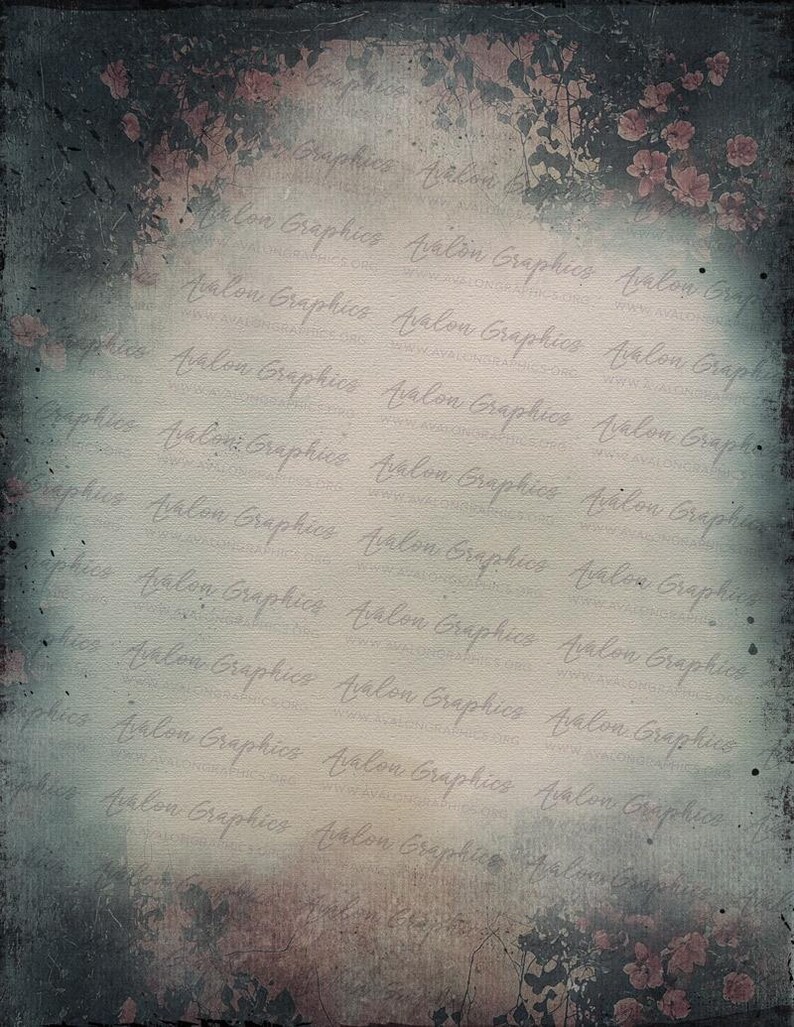 Graphics
Graphics
Avalon
Avalon Graphics
WWW.AVALONGRAPHICS.ORG
Avalon Graphics
WWW.AVALONGRAPHICS.ORG
Avalon
Avalon Graphics
WWW.AVALONGRAPHICS.ORG
Avalon Graphics
WWW.AVALONGRAPHICS.ORG
Avalon Graphics
WWW.AVALONGRAPHICS.ORG
Avalon Graphics
WWW.AVALONGRAPHICS.ORG
Avalon Graphics
WWW.AVALONGRAPHICS.ORG
Avalon Graphics
WWW.AVALONGRAPHICS.ORG
Graphics
Avalon Graphics
WWW.AVALONGRAPHICS.ORG
Avalon Graphics
WWW.AVALONGRAPHICS.ORG
Avalon Graphics
WWW.AVALONGRAPHICS.ORG
Graphics
Avalon Graphics
WWW.AVALONGRAPHICS.ORG
Avalon Graphics
WWW.AVALONGRAPHICS.ORG
Avalon Graphics
WWW.AVALONGRAPHICS.ORG
Avalon Graphics
WWW.AVALONGRAPHICS.ORG
Avalon Graphics
WWW.AVALONGRAPHICS.ORG
Avalon Graphics
WWW.AVALONGRAPHICS.ORG
Avalon Graphics
WWW.AVALONGRAPHICS.ORG
Avalon Graphics
WWW.AVALONGRAPHICS.ORG
Avalon Graphics
WWW.AVALONGRAPHICS.ORG
Avalon Graphics
WWW.AVALONGRAPHICS.ORG
Avalon Graphics
Avalon Graphics
Avalon Graphics